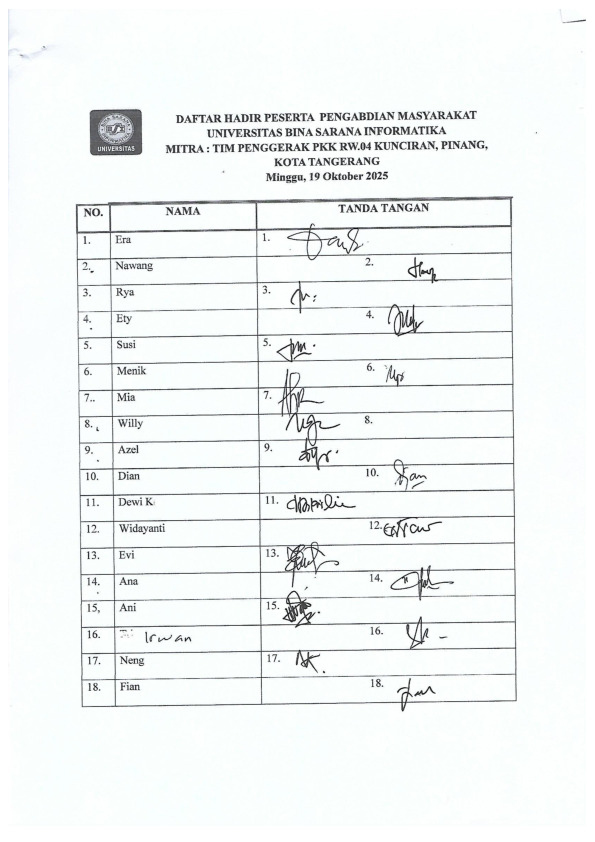 UNIVERSITAS
DAFTAR HADIR PESERTA PENGABDIAN MASYARAKAT
UNIVERSITAS BINA SARANA INFORMATIKA
MITRA : TIM PENGGERAK PKK RW.04 KUNCIRAN, PINANG,
KOTA TANGERANG
Minggu, 19 Oktober 2025
NO. NAMA TANDA TANGAN
1. Era 1.
2. Nawang 2.
3. Rya 3.
4. Ety 4.
5. Susi 5.
6. Menik 6.
7.. Mia 7.
8. Willy 8.
9. Azel 9.
10. Dian 10.
11. Dewi K 11.
12. Widayanti 12.
13. Evi 13.
14. Ana 14.
15, Ani 15.
16. Irwan 16.
17. Neng 17.
18. Fian 18.